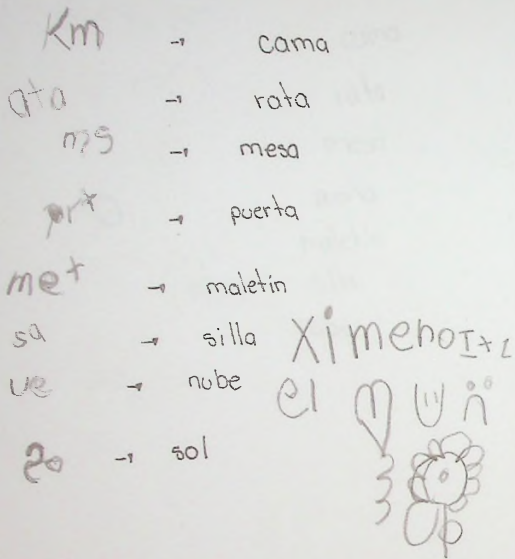 Km → cama
ata → rata
ms → mesa
prt → puerta
met → maletín
sa → silla
ue → nube
so → sol
Ximeno
el